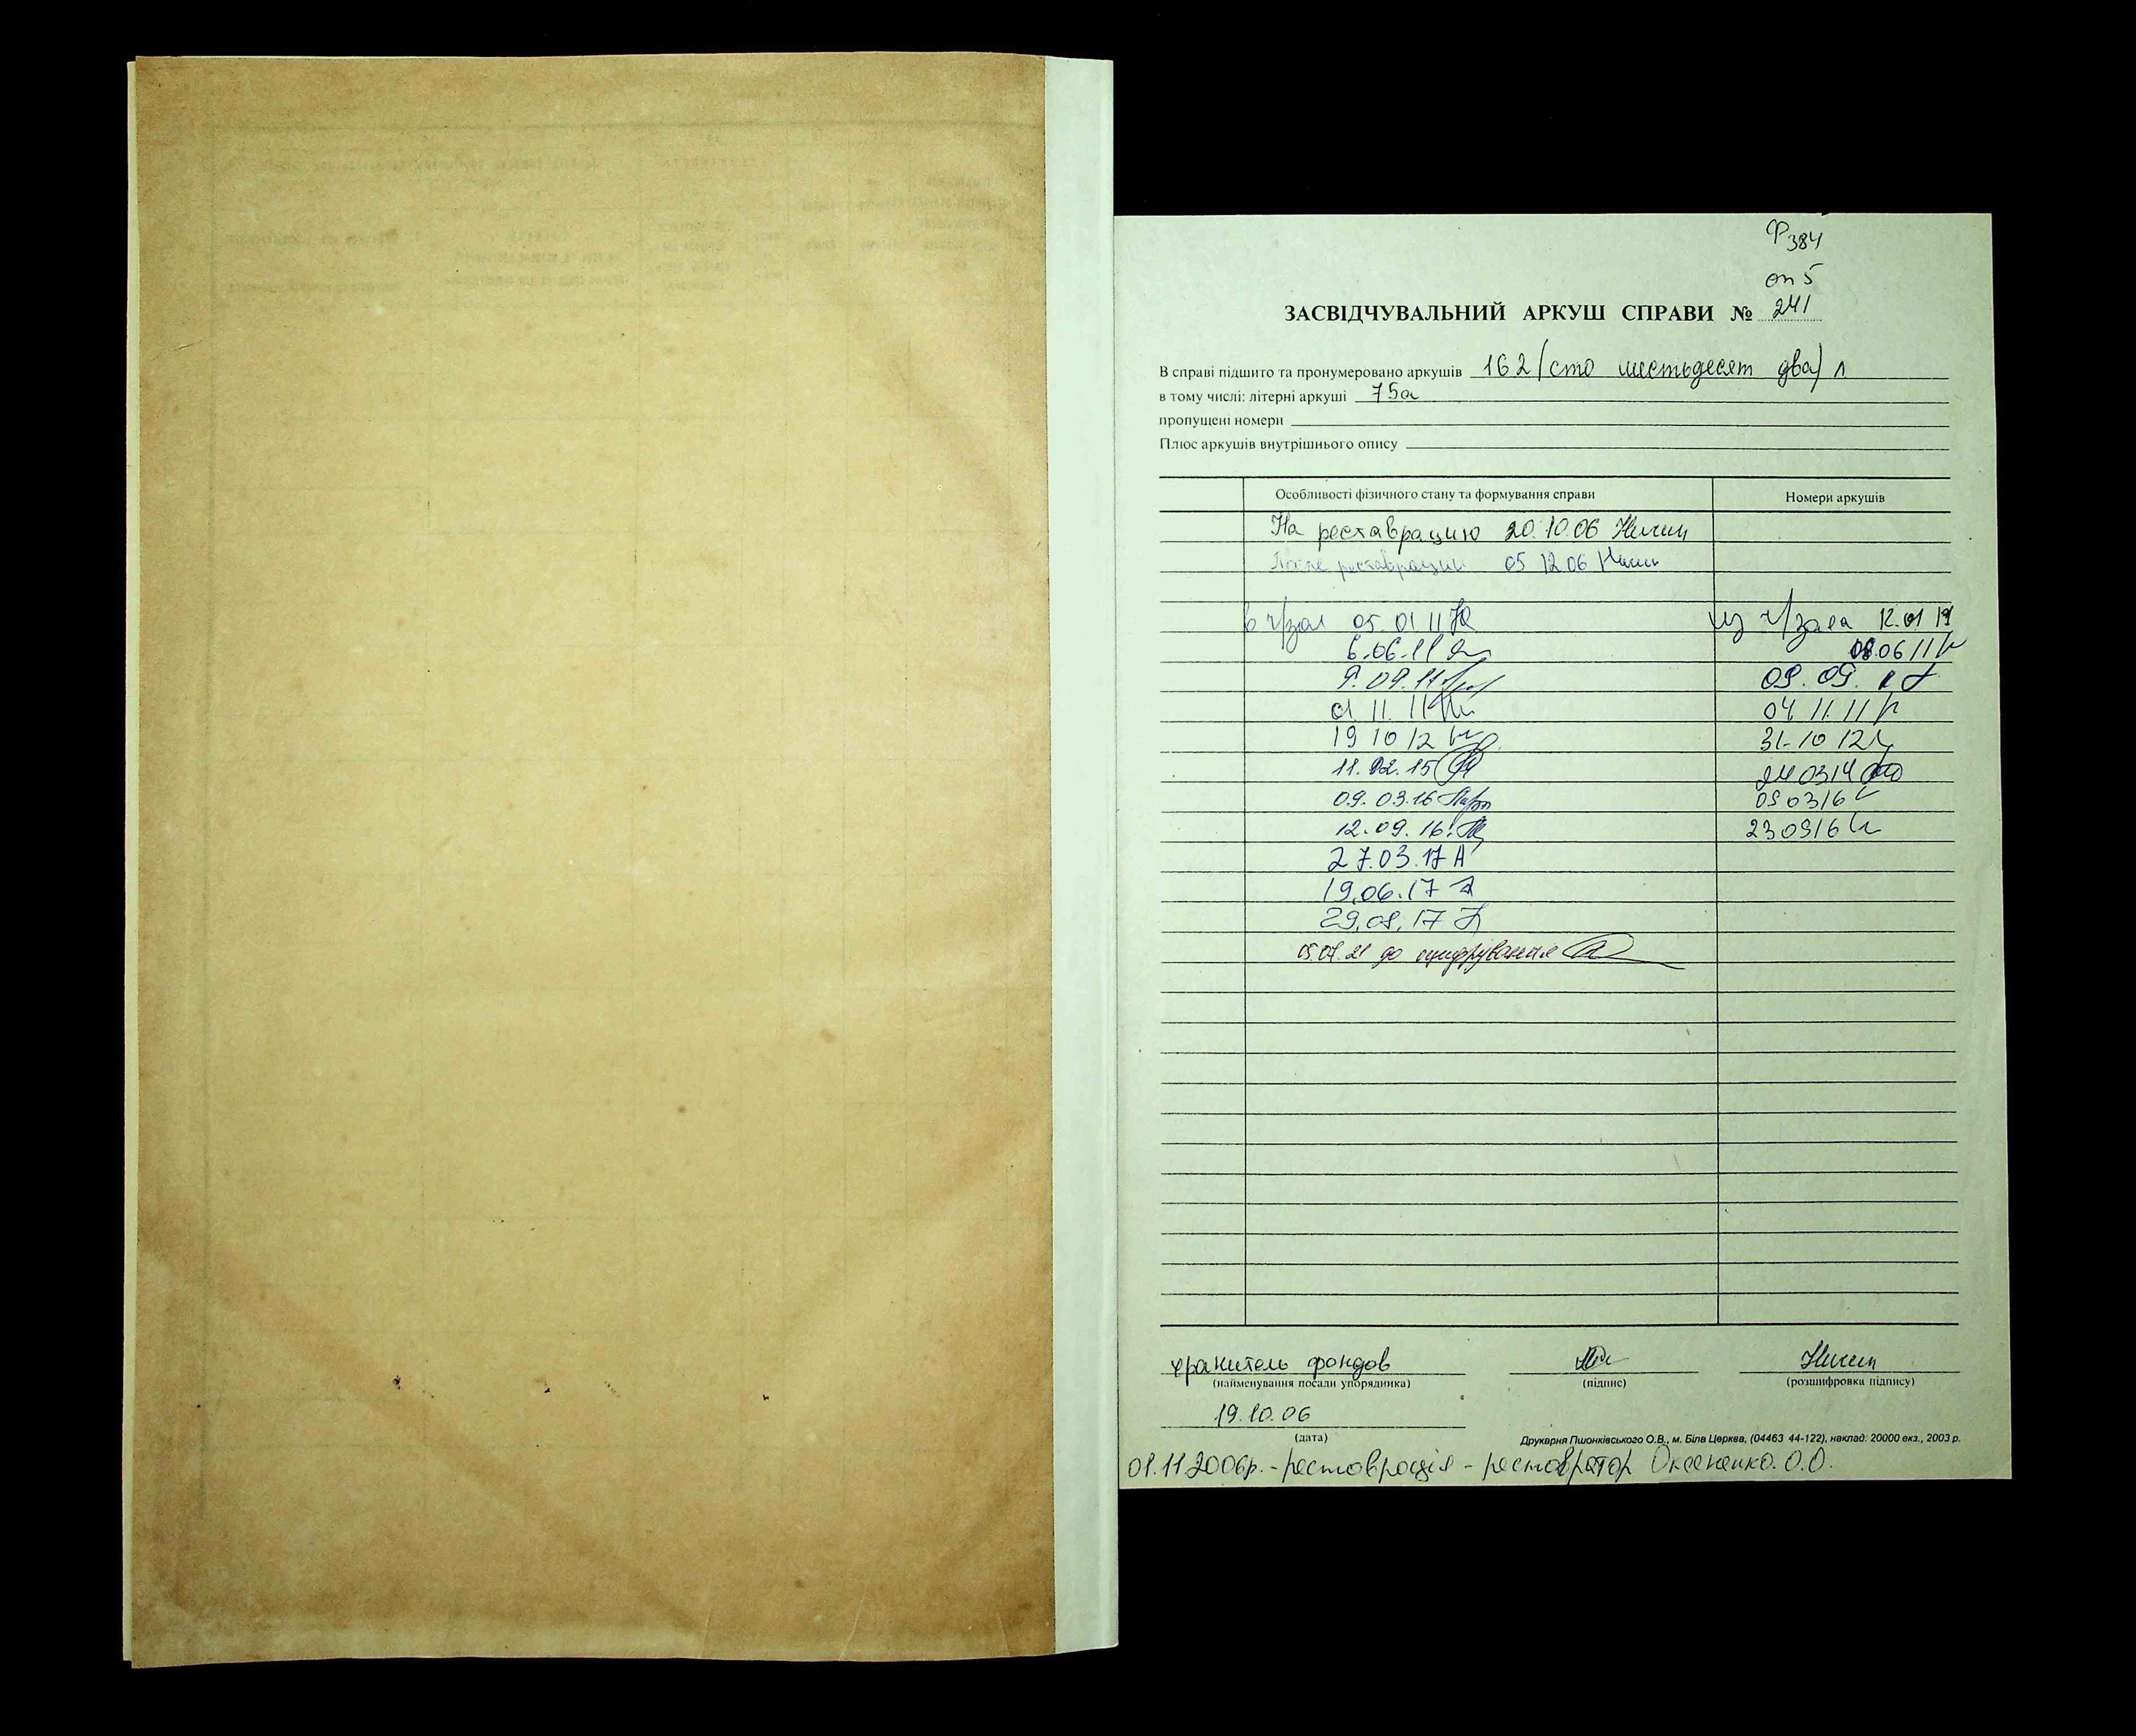 Ф 384
оп 5
ЗАСВІДЧУВАЛЬНИЙ АРКУШ СПРАВИ № 241
В справі підшито та пронумеровано аркушів 162 (сто шестьдесят два) л
в тому числі: літерні аркуші 75а
пропущені номери
Плюс аркушів внутрішнього опису
Особливості фізичного стану та формування справи Номери аркушів
На реставрацию 20.10.06
После реставрации 05 12 06
в ч/зал 05.01 11 из ч/зала 12.01
6.06.11 08.06 11
9.09.11 09.09.
01 11. 11 04 11 11
19 10 12 31-10 12
11.02.15 24 03 14
09.03.16 09 03 16
12.09.16 23 09 16
27.03.17 А
19.06.17
29.08.17
05.07.21 до оцифрування
хранитель фондов
(найменування посади упорядника) (підпис) (розшифровка підпису)
19.10.06
(дата)
Друкарня Пшонківського О.В., м. Біла Церква, (04463 44-122), наклад: 20000 екз., 2003 р.
01.11.2006р. - реставрація - реставратор Оксененко. О.О.